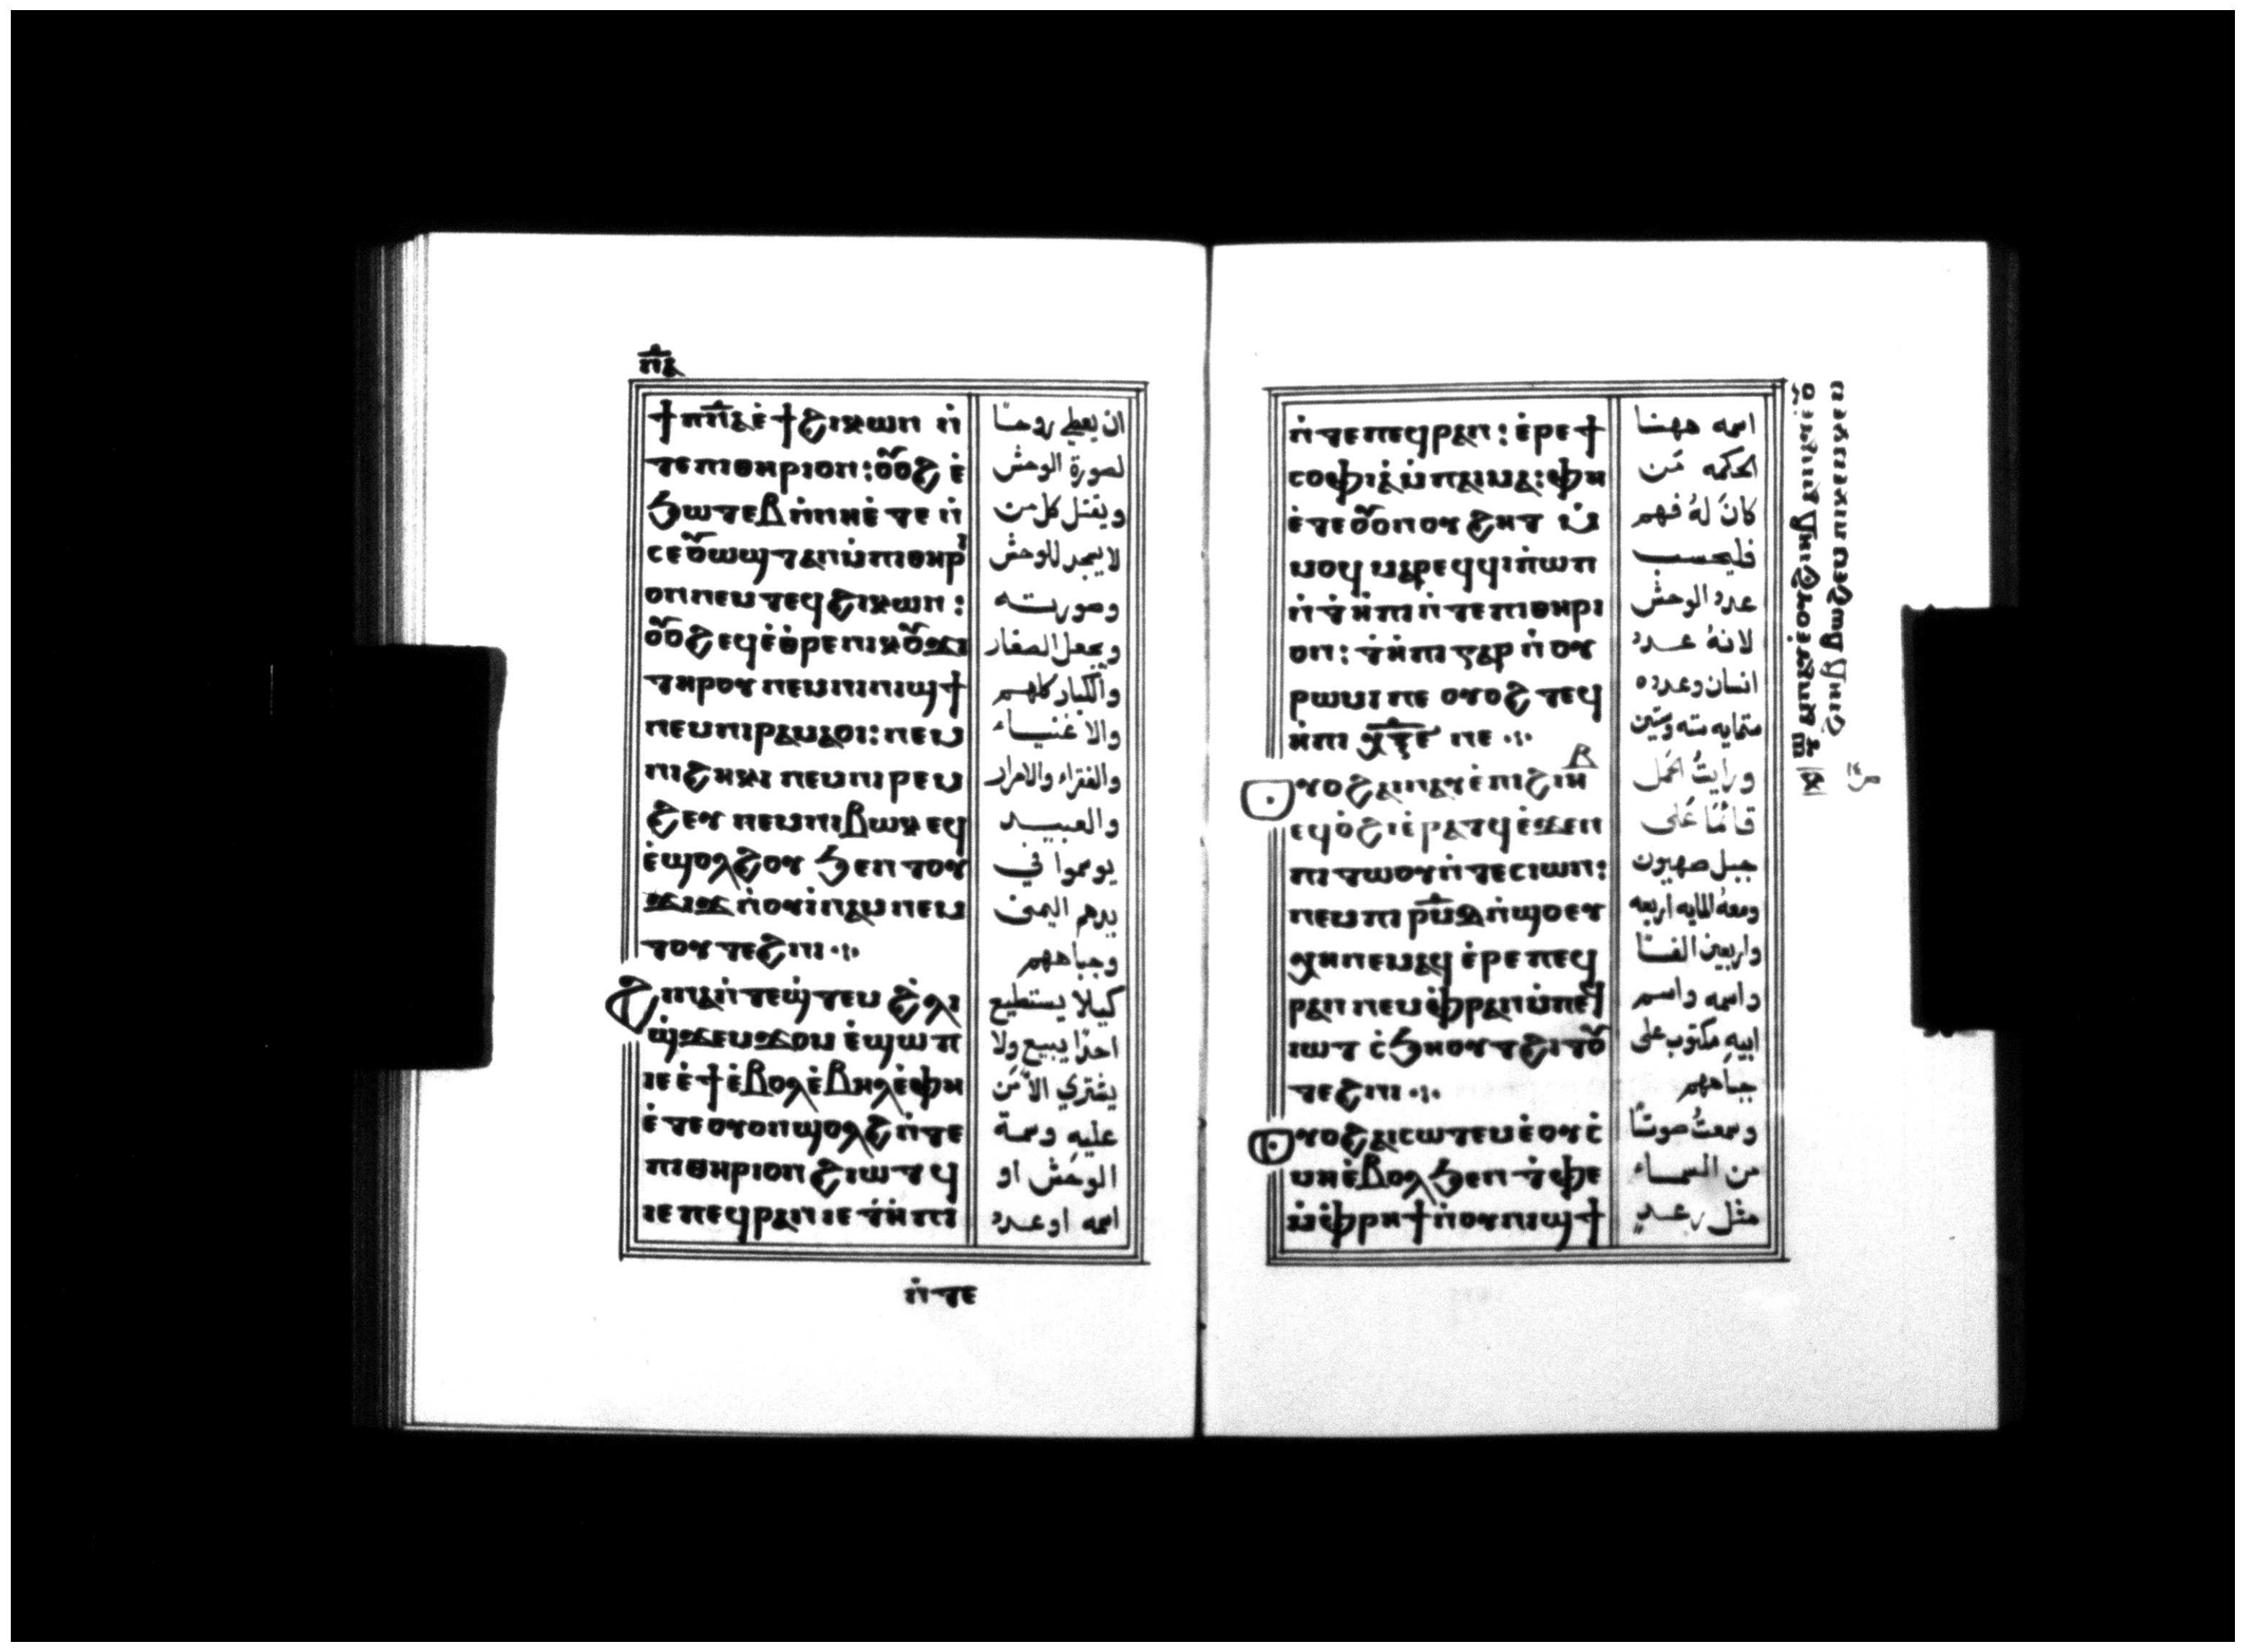 ϯⲡⲛ̅ⲁ̅ ⲉ̀ϯϩⲓⲕⲱⲛ ⲛ̀
ⲧⲉⲡⲓⲑⲏⲣⲓⲟⲛ: ⲟⲩⲟϩ ⲉ̀
ϧⲱⲧⲉⲃ ⲛ̀ⲛⲏ ⲉ̀ⲧⲉ ⲛ̀
ⲥⲉⲟⲩⲱϣⲧ ⲁⲛ ⲙ̀ⲡⲓⲑⲏⲣⲓ
ⲟⲛ ⲛⲉⲙ ⲧⲉϥϩⲓⲕⲱⲛ:
ⲟⲩⲟϩ ⲉϥⲉ̀ⲑⲣⲉ ⲛⲓⲕⲟⲩϫⲓ
ⲧⲏⲣⲟⲩ ⲛⲉⲙ ⲛⲓⲛⲓϣϯ
ⲛⲉⲙ ⲛⲓⲣⲁⲙⲁⲟⲓ: ⲛⲉⲙ
ⲛⲓϩⲏⲕⲓ ⲛⲉⲙ ⲛⲓⲣⲉⲙ
ϩⲉⲩ ⲛⲉⲙ ⲛⲓⲉⲃⲓⲁⲓⲕ ⲉϥ
ⲉ̀ϣⲟⲗϩⲟⲩ ϧⲉⲛ ⲧⲟⲩ
ϫⲓϫ ⲛ̀ⲟⲩⲓⲛⲁⲙ ⲛⲉⲙ
ⲧⲟⲩ ⲧⲉϩⲛⲓ ·:·
ϩⲓⲛⲁ ⲛ̀ⲧⲉϣⲧⲉⲙ ϩ̀ⲗⲓ
ϣ̀ϫⲉⲙϫⲟⲙ ⲉ̀ϣⲱⲡ
ⲓⲉ ⲉ̀ϯ ⲉ̀ⲃⲟⲗ ⲉ̀ⲃⲏⲗ ⲉ̀ⲫⲏ
ⲉ̀ⲧⲉ ⲟⲩⲟⲛ ϣⲟⲗϩ ⲛ̀ⲧⲉ
ⲡⲓⲑⲏⲣⲓⲟⲛ ϩⲓⲱⲧϥ
ⲓⲉ ⲡⲉϥⲣⲁⲛ ⲓⲉ ⲧ̀ⲏⲡⲓ
ⲛ̀ⲧⲉ
ان يعطي روحًا
لصورة الوحش
ويقتل كل من
لا يسجد للوحش
وصورته
ويجعل الصغار
والكبار كلهم
والاغنياء
والفقراء والاحرار
والعبيد
يوسموا في
يدهم اليمنى
وجباههم
كيلا يستطيع
احدًا يبيع ولا
يشتري الا مَن
عليهِ وسمة
الوحش او
اسمه او عدد
ⲛ̀ⲧⲉ ⲡⲉϥⲣⲁⲛ: ⲉ̀ⲣⲉ ϯ
ⲥⲟⲫⲓⲁ ⲙ̀ⲡⲁⲓⲙⲁ: ⲫⲏ
ⲉ̀ⲧⲉ ⲟⲩⲟⲛ ⲟⲩϩⲏⲧ ⲙ̀
ⲙⲟϥ ⲙⲁⲣⲉϥϥⲓⲡ̀ⲱⲡ
ⲛ̀ⲧ̀ⲏⲡⲓ ⲛ̀ⲧⲉ ⲡⲓⲑⲏⲣⲓ
ⲟⲛ: ⲧ̀ⲏⲡⲓ ⲅⲁⲣ ⲛ̀ⲟⲩ
ⲣⲱⲙⲓ ⲧⲉ ⲟⲩⲟϩ ⲧⲉϥ
ⲏ̀ⲡⲓ ⲭ̅ⲝ̅ⲋ̅ ⲧⲉ ·:·
ⲟⲩⲟϩ ⲁⲓⲛⲁⲩ ⲉ̀ⲡⲓϩⲓⲏⲃ
ⲉϥⲟ̀ϩⲓ ⲉ̀ⲣⲁⲧϥ ⲉ̀ϫⲉⲛ
ⲡⲓⲧⲱⲟⲩ ⲛ̀ⲧⲉ ⲥⲓⲱⲛ:
ⲛⲉⲙ ⲡⲓ ⲣ̅ⲙ̅ⲇ̅ ⲛ̀ϣⲟ ⲉⲩ
ⲭⲏ ⲛⲉⲙⲁϥ ⲉ̀ⲣⲉ ⲡⲉϥ
ⲣⲁⲛ ⲛⲉⲙ ⲫ̀ⲣⲁⲛ ⲙ̀ⲡⲉϥ
ⲓⲱⲧ ⲥ̀ϧⲏⲟⲩⲧ ϩⲓ ⲧⲟⲩ
ⲧⲉϩⲛⲓ ·:·
ⲟⲩⲟϩ ⲁⲓⲥⲱⲧⲉⲙ ⲉ̀ⲟⲩⲥ̀
ⲙⲏ ⲉ̀ⲃⲟⲗ ϧⲉⲛ ⲧ̀ⲫⲉ
ⲙ̀ⲫ̀ⲣⲏϯ ⲛ̀ⲟⲩⲛⲓϣϯ
اسمه ههنا
الحكمه مَن
كانَ لهُ فهم
فليحسب
عدد الوحش
لانهُ عدد
انسان وعدده
ستمايه سته وستين
ورايتُ الحَمَل
قائمًا عَلى
جبل صهيون
ومعهُ المايه اربعه
واربعين الفًا
واسمه واسم
ابيهِ مكتوب على
جباههم
وسمعتُ صوتًا
من السماء
مثل رعدٍ